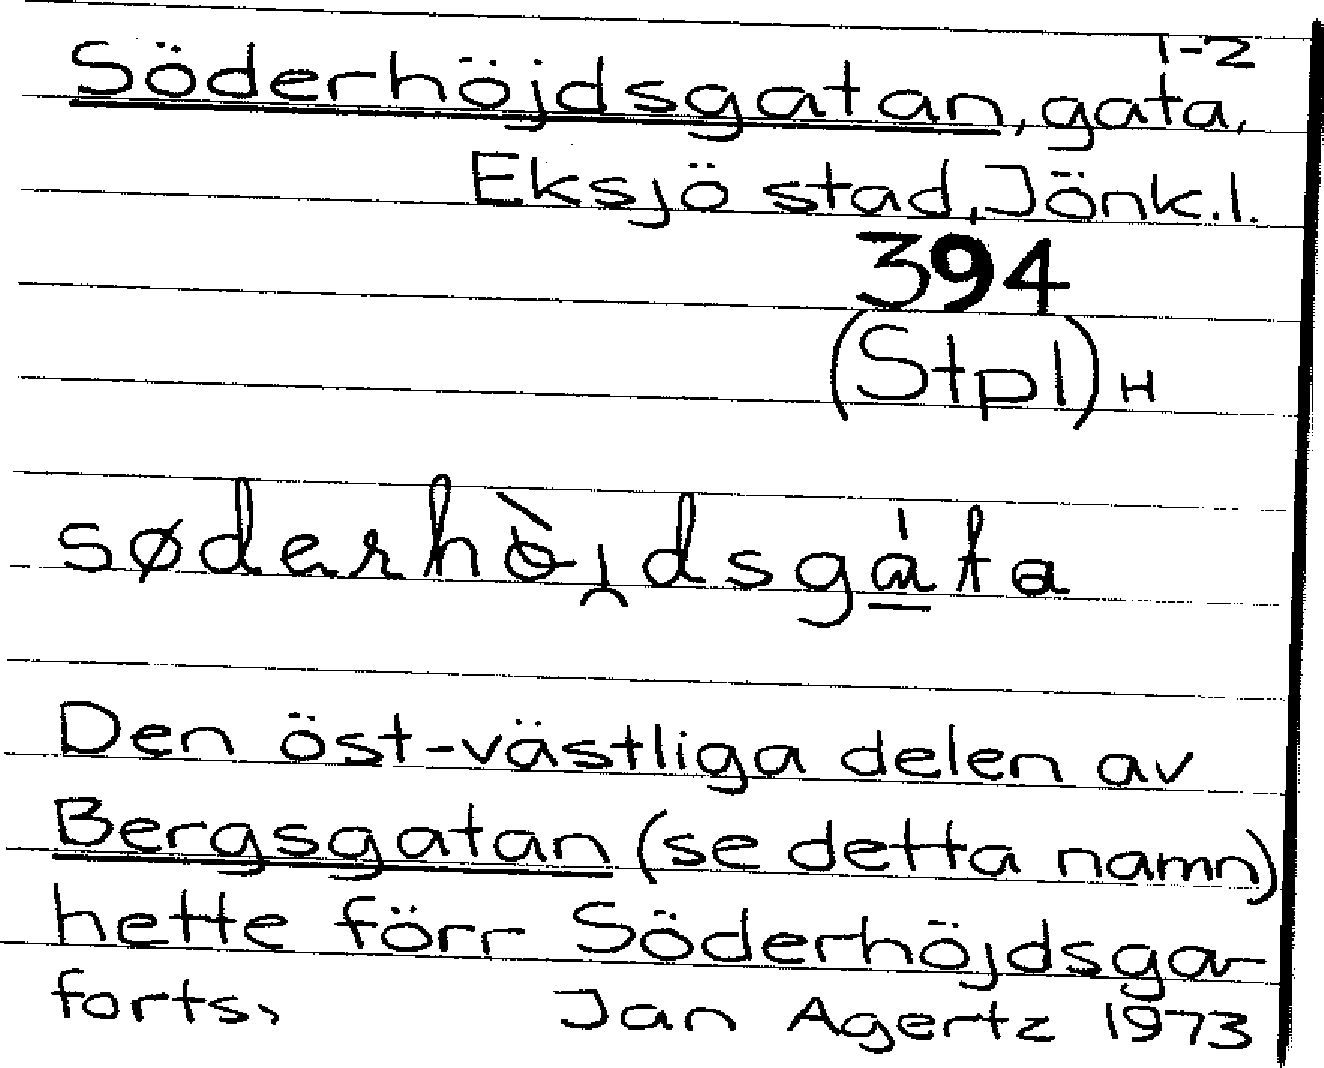 1-2
Söderhöjdsgatan, gata,
Eksjö stad, Jönk.l.
394
(Stpl) H
søderhò̀i̯dsgáta
Den öst-västliga delen av
Bergsgatan (se detta namn)
hette förr Söderhöjdsga-
forts, Jan Agertz 1973